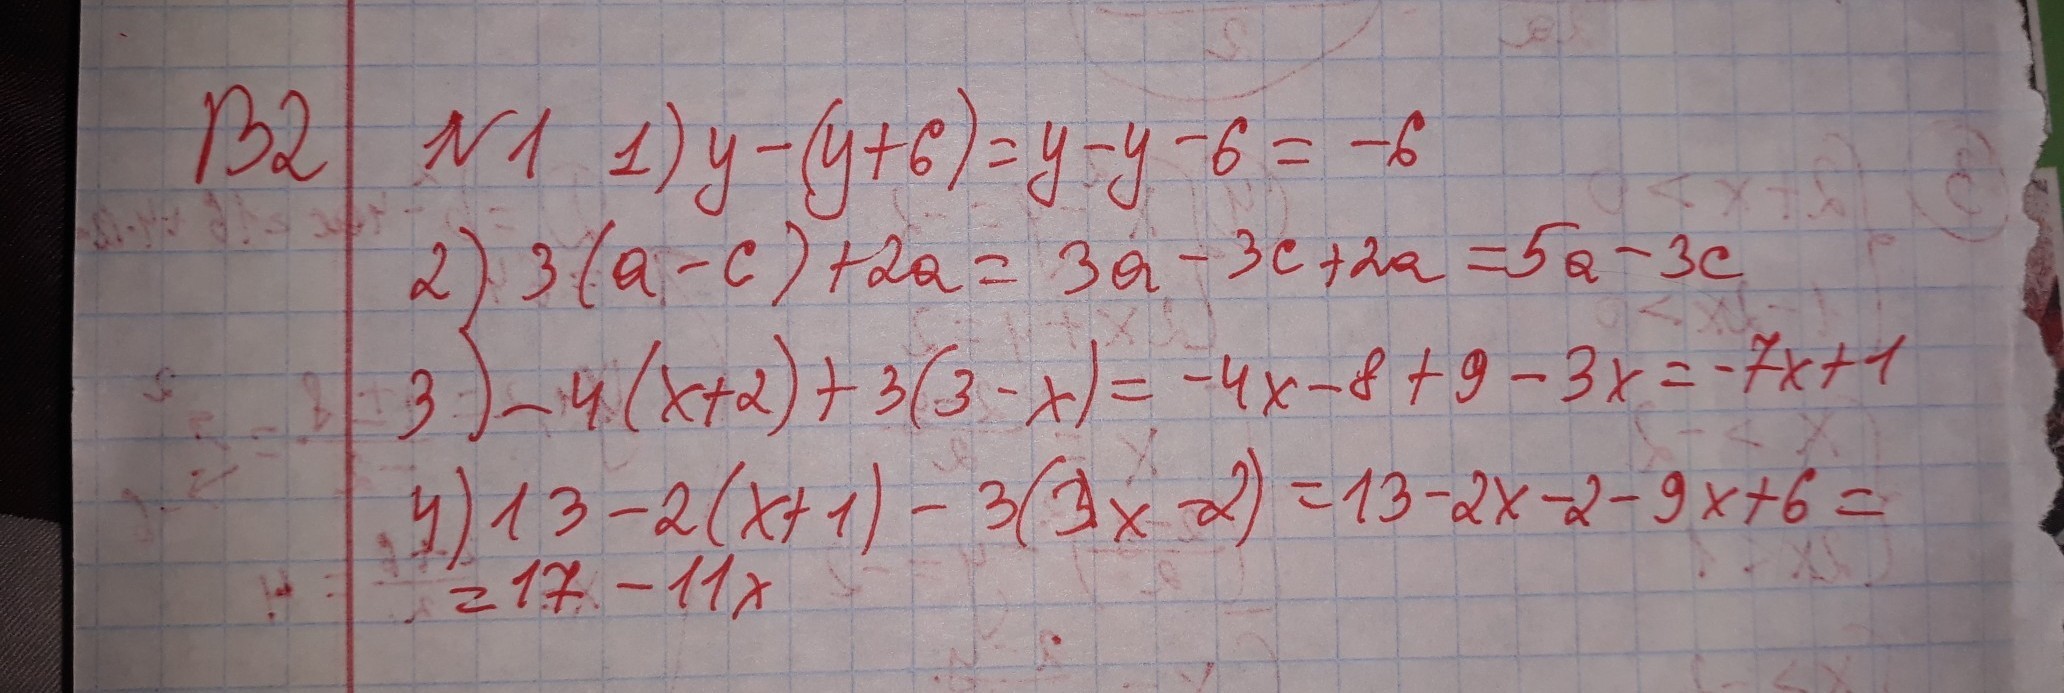 В2 №1 1) y-(y+6)=y-y-6=-6
2) 3(a-c)+2a=3a-3c+2a=5a-3c
3) -4(x+2)+3(3-x)=-4x-8+9-3x=-7x+1
4) 13-2(x+1)-3(3x-2)=13-2x-2-9x+6=
=17-11x